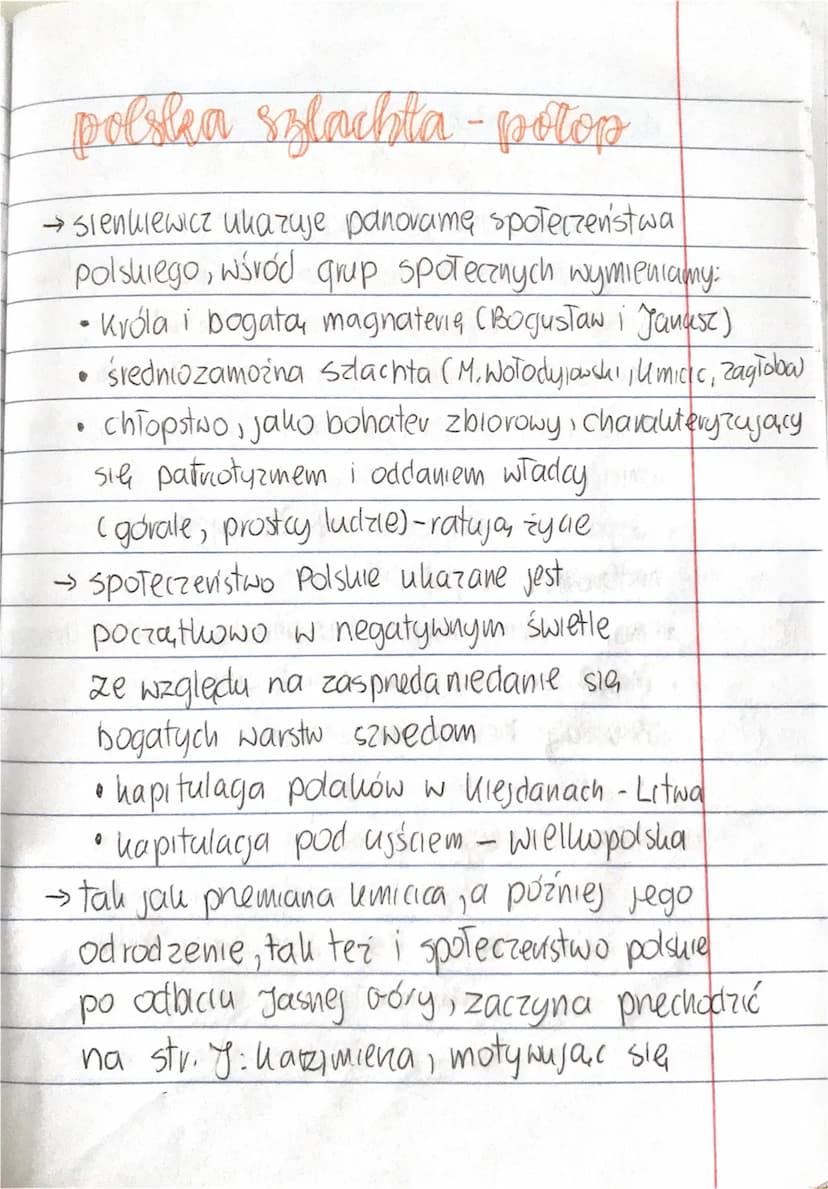 polska szlachta - potop
→ sienkiewicz ukazuje panoramę społeczeństwa
polskiego, wśród grup społecznych wymieniamy:
• króla i bogatą magnaterię (Bogusław i Janusz)
• średniozamożna szlachta (M. Wołodyjowski, Kmicic, Zagłoba)
• chłopstwo, jako bohater zbiorowy, charakteryzujący
się patriotyzmem i oddaniem władcy
(górale, prostcy ludzie) - ratują życie
→ społeczeństwo Polskie ukazane jest
początkowo w negatywnym świetle
ze względu na zasprzedanie się
bogatych warstw szwedom
• kapitulacja polaków w Kiejdanach - Litwa
• kapitulacja pod ujściem - wielkopolska
→ tak jak przemiana kmicica, a później jego
odrodzenie, tak też i społeczeństwo polskie
po odbiciu Jasnej Góry, zaczyna przechodzić
na str. J. Kazimierza, motywując się